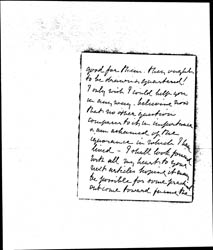 good for them. They ought
to be drawn & quartered!
I only wish I could help you
in any way. believing now
that no other question
compares to it, in importance
& am ashamed of the
ignorance in which I have
lived - I shall look forward
with all my heart to your
next articles
be possible for some
outcome toward